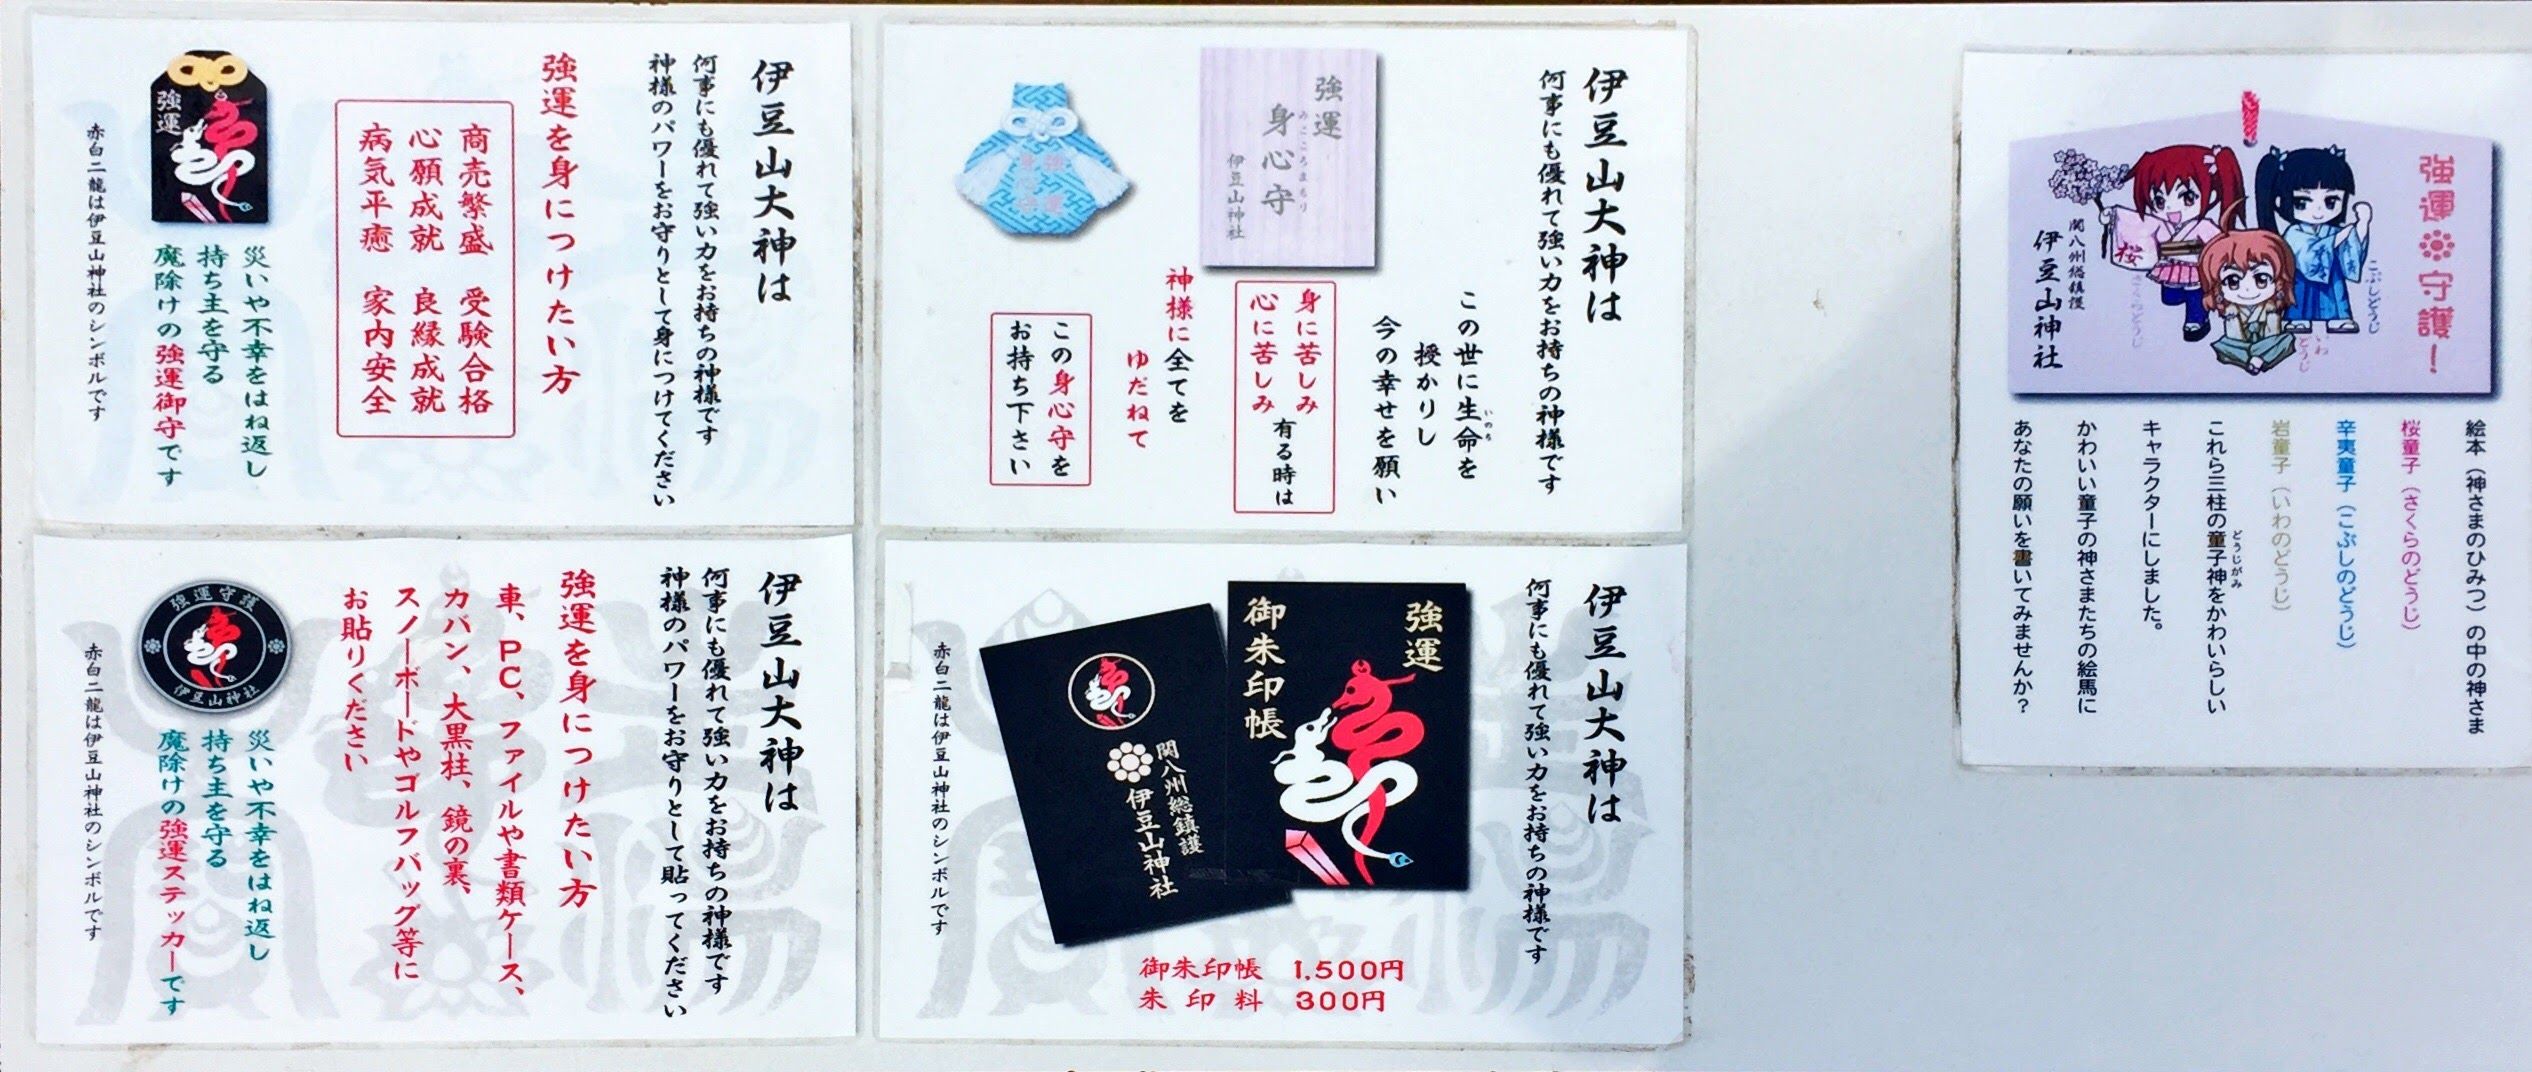 伊豆山大神は
何事にも優れて強い力をお持ちの神様です
神様のパワーをお守りとして身につけてください
強運を身につけたい方
商売繁盛 受験合格
心願成就 良縁成就
病気平癒 家内安全
強運
災いや不幸をはね返し
持ち主を守る
魔除けの強運御守です
赤白二龍は伊豆山神社のシンボルです
伊豆山大神は
何事にも優れて強い力をお持ちの神様です
強運
身心守
みこころまもり
伊豆山神社
この世に生命を
いのち
授かりし
今の幸せを願い
身に苦しみ
心に苦しみ
有る時は
神様に全てを
ゆだねて
この身心守を
お持ち下さい
強運守護!
関八州総鎮護
伊豆山神社
桜
さくらどうじ
こぶしどうじ
いわどうじ
絵本(神さまのひみつ)の中の神さま
桜童子(さくらのどうじ)
辛夷童子(こぶしのどうじ)
岩童子(いわのどうじ)
これら三柱の童子神をかわいらしい
どうじがみ
キャラクターにしました。
かわいい童子の神さまたちの絵馬に
あなたの願いを書いてみませんか?
伊豆山大神は
何事にも優れて強い力をお持ちの神様です
神様のパワーをお守りとして貼ってください
強運を身につけたい方
車、PC、ファイルや書類ケース、
カバン、大黒柱、鏡の裏、
スノーボードやゴルフバッグ等に
お貼りください
強運守護
伊豆山神社
災いや不幸をはね返し
持ち主を守る
魔除けの強運ステッカーです
赤白二龍は伊豆山神社のシンボルです
伊豆山大神は
何事にも優れて強い力をお持ちの神様です
強運
御朱印帳
関八州総鎮護
伊豆山神社
赤白二龍は伊豆山神社のシンボルです
御朱印帳 1,500円
朱印料 300円